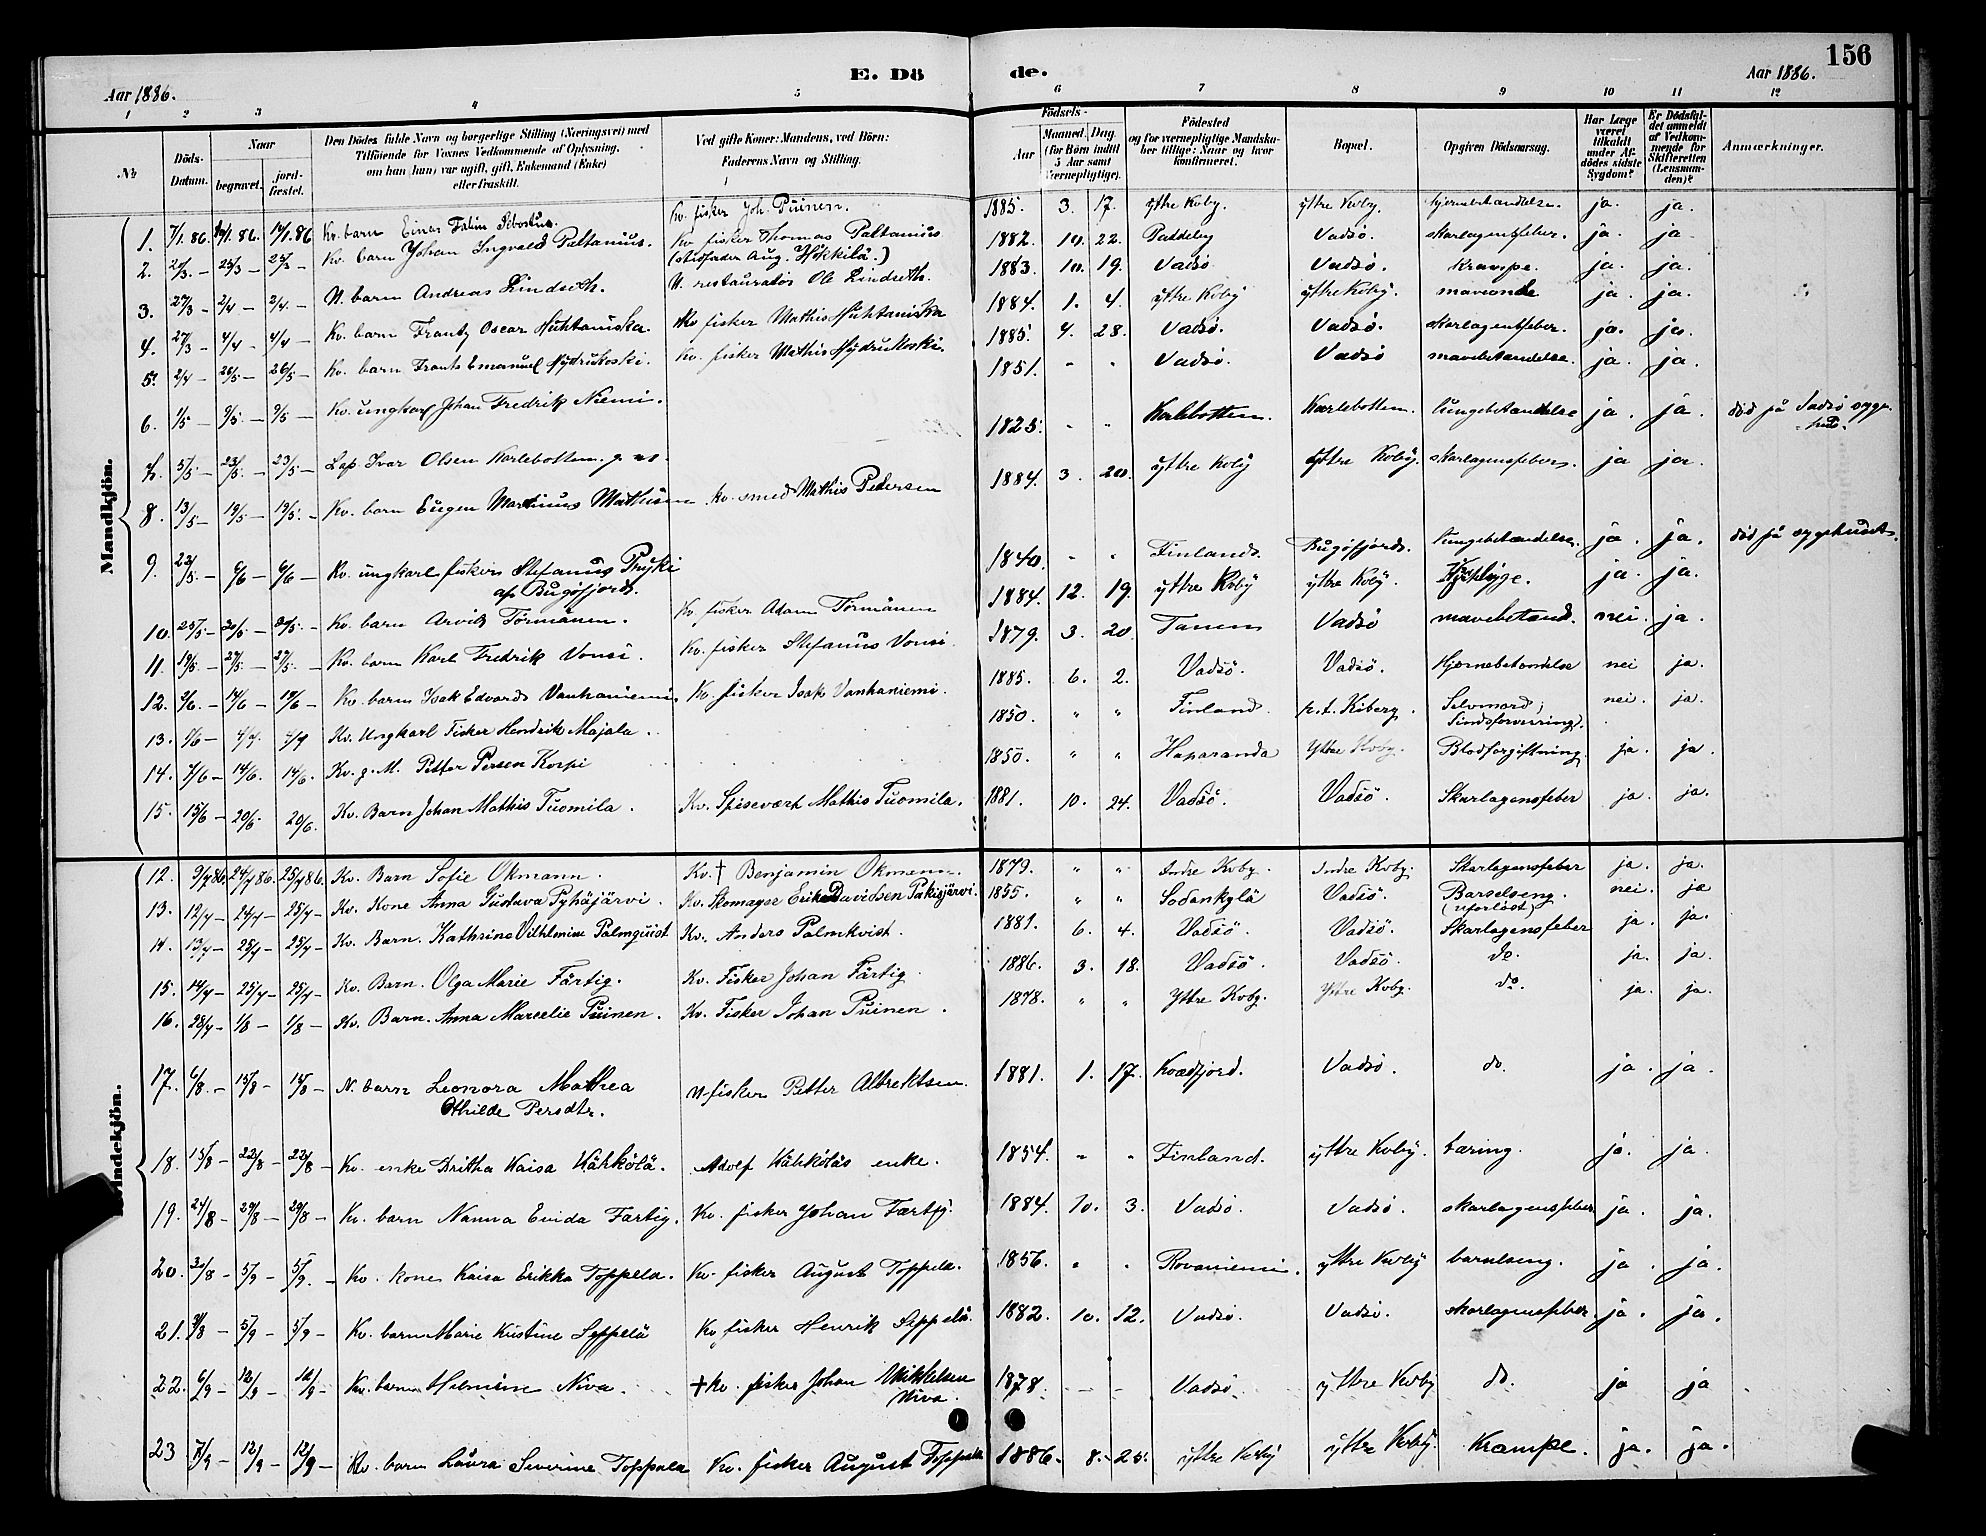 156
E. Dö de.
Aar 1886. Aar 1886.
1 2 3 4 5 6 7 8 9 10 11 12
No Döds-Datum. Naar begravet. jord-fæstet. Den Dödes fulde Navn og borgerlige Stilling (Næringsvei) med Tilföiende for Voxnes Vedkommende af Oplysning, om han (hun) var ugift, gift, Enkemand (Enke) eller fraskilt. Ved gifte Koner: Mandens, ved Börn: Faderens Navn og Stilling. Födsels- Aar Maaned. Dag. (for Börn indtil 5 Aar samt Værnepligtige). Födested og for værnepligtige Mandskaber tillige: Naar og hvor konfirmeret. Bopæl. Opgiven Dödsaarsag. Har Læge været tilkaldt under Afdödes sidste Sygdom? Er Dödsfaldet anmeldt af Vedkommende for Skifteretten (Lensmanden)? Anmærkninger.
Mandkjön.
1. 7/1. 86. 1/1. 86. 14/1. 86 Kv. barn Einar Kv. fisker Joh. Puinen. 1885. 3. 17. ytre Kvby. ytre Kvby. hjernebetændelse. ja. ja.
2. 21/3. – 25/3 – 25/3 – Kv. barn Johan Ingvald Paltanius. Kv. fisker Thomas Paltanius 1882. 10. 22. Paddeby Vadsö. skarlagensfeber. ja. ja
(stedfader Aug. Hökkilä.)
3. 27/3 – 2/4 – 2/4. – N. barn Andreas Lindseth. N. restauratör Ole Lindseth. 1883. 10. 19. Vadsö Vadsö. krampe. ja. ja.
4. 27/3 – 4/4 – 4/4 – Kv. barn Frantz Oscar Huhtaniska. Kv. fisker Mathis Huhtaniska 1884. 1. 4. ytre Kvby ytre Kvby. maveonde ja. ja.
5. 2/4 – 26/5 – 26/5 – Kv. barn Frants Emanuel Nydrukoski. Kv. fisker Mathis Nydrukoski. 1885. 4. 28. Vadsö. Vadsö. skarlagensfeber. ja. ja.
6. 1/5 – 9/5 – 9/5 – Kv. ungkarl Johan Fredrik Niemi. 1851. " " Vadsö. Vadsö mavebetændelse. ja. ja.
7. 5/5 – 23/5 – 23/5 – Lap. Ivar Olsen Karlebotten. g. m. 1825. " " Karlebotten. Karlebotten. lungebetændelse ja. ja. död på Vadsö syge-hus.
8. 13/5 – 19/5 – 19/5. – Kv. barn Eugen Martinus Mathisen. Kv. smed Mathis Pedersen 1884. 3. 20. ytre Kvby ytre Kvby. skarlagensfeber. ja ja.
9. 23/5. – 6/6 – 6/6 – Kv. ungkarl fisker Stefanus Pryki 1840. " " Finland. Bugöfjord. lungebetændelse. ja. ja. död på sygehuset.
af Bugöfjord.
10. 25/5 – 30/5 – 30/5. – Kv. barn Arvid Törmänen. Kv. fisker Adam Törmänen 1884. 12. 19. ytre Kvby ytre Kvby. ja. ja.
11. 19/5. – 27/5 – 27/5. – Kv. barn Karl Fredrik Vonsi. Kv. fisker Stefanus Vonsi. 1879. 3. 20. Tanen Vadsö mavebetænd. nei. ja.
12. 2/6. – 14/6 – 19/6 – Kv. barn Isak Edvard Vanhaniemi Kv. fisker Isak Vanhaniemi. 1885. 6. 2. Vadsö. Vadsö. Hjernebetændelse nei ja.
13. 7/6 – 4/9. 4/9 Kv. Ungkarl Fisker Hendrik Majala. 1850. " " Finland. p.t. Kiberg. Selvmord, Sindsforvirring. nei. ja.
14. 7/6 – 14/6. 14/6. Kv. g. M. Petter Persen Korpi 1850. " " Haparanda Ytre Kvby. Blodforgiftning. ja. ja.
15. 15/6 – 20/6. 20/6. Kv. Barn Johan Mathis Tuomila. Kv. Spisevært Mathis Tuomila. 1881. 10. 24. Vadsö. Vadsö. Skarlagensfeber ja. ja.
Kvindekjön.
12. 9/7 86. 24/7 86. 25/7 86. Kv. Barn Sofie Okmann. Kv. † Benjamin Okmann. 1879. " " Indre Kvby. Indre Kvby. Skarlagensfeber ja. ja.
13. 12/7 – 24/7 – 25/7 – Kv. Kone Anna Gustava Pyhäjärvi. Kv. Skomager Erik Davidsen Pakisjärvi. 1855. " " Sodankylä Vadsö. Barselseng. (uforlöst) nei. ja
14. 13/7 – 25/7 – 25/7 – Kv. Barn. Kathrine Vilhelmine Palmquist Kv. Anders Palmkvist. 1881. 6. 4. Vadsö. Vadsö. Skarlagensfeber ja. ja.
15. 14/7 – 25/7 – 25/7 – Kv. Barn. Olga Marie Färtig. Kv. Fisker Johan Färtig. 1886. 3. 18. Vadsö. Vadsö. do. ja. ja.
16. 28/7 – 1/8 – 1/8 – Kv. Barn. Anna Marcelie Puinen. Kv. Fisker Johan Puinen. 1878. " " Ytre Kvby. Ytre Kvby. do. ja. ja.
17. 6/8 – 15/8 – 15/8 – N. barn Leonora Mathea N. fisker Petter Albrektsen. 1881. 1. 17. Kvædfjord. Vadsö. do. ja. ja.
Othilde Persdtr.
18. 15/8 – 22/8 – 22/8 – Kv. enke Britha Kaisa Kähkölä. Adolf Kähköläs enke. 1854. " " Finland. ytre Kvby. tæring. ja. ja
19. 24/8 – 29/8 – 29/8 – Kv. barn Nanna Enida Färtig. Kv. fisker Johan Færtig. 1884. 10. 3. Vadsö. Vadsö. skarlagensfeber ja. ja.
20. 30/8 – 5/9 – 5/9. – Kv. kone Kaisa Erikka Toppela. Kv. fisker August Toppela. 1856. " " Rovaniemi. ytre Kvby barselseng. ja. ja.
21. 31/8 – 5/9 – 5/9 – Kv. barn Marie Kristine Seppelä Kv. fisker Henrik Seppelä. 1882. 10. 12. Vadsö. Vadsö. skarlagensfeber. ja. ja.
22. 6/9 – 12/9 – 12/9 – Kv. barn Helmine Niva. † Kv. fisker Johan Mikkelsen Niva. 1878. – – Vadsö. ytre Kvby do. ja ja
23 8/9 – 12/9 – 12/9 – Kv. barn Laura Severine Toppela Kv. fisker August Toppela 1886. 8. 25. ytre Kvby ytre Kvby. Krampe. ja. ja.